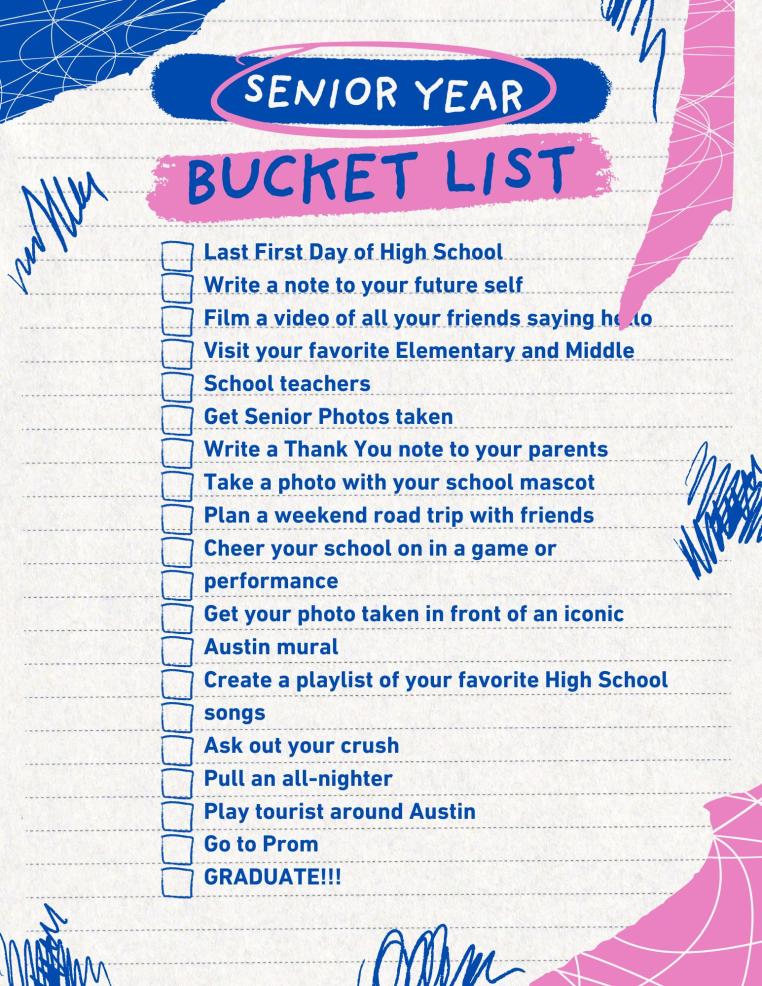 SENIOR YEAR
BUCKET LIST
Last First Day of High School
Write a note to your future self
Film a video of all your friends saying hello
Visit your favorite Elementary and Middle
School teachers
Get Senior Photos taken
Write a Thank You note to your parents
Take a photo with your school mascot
Plan a weekend road trip with friends
Cheer your school on in a game or
performance
Get your photo taken in front of an iconic
Austin mural
Create a playlist of your favorite High School
songs
Ask out your crush
Pull an all-nighter
Play tourist around Austin
Go to Prom
GRADUATE!!!